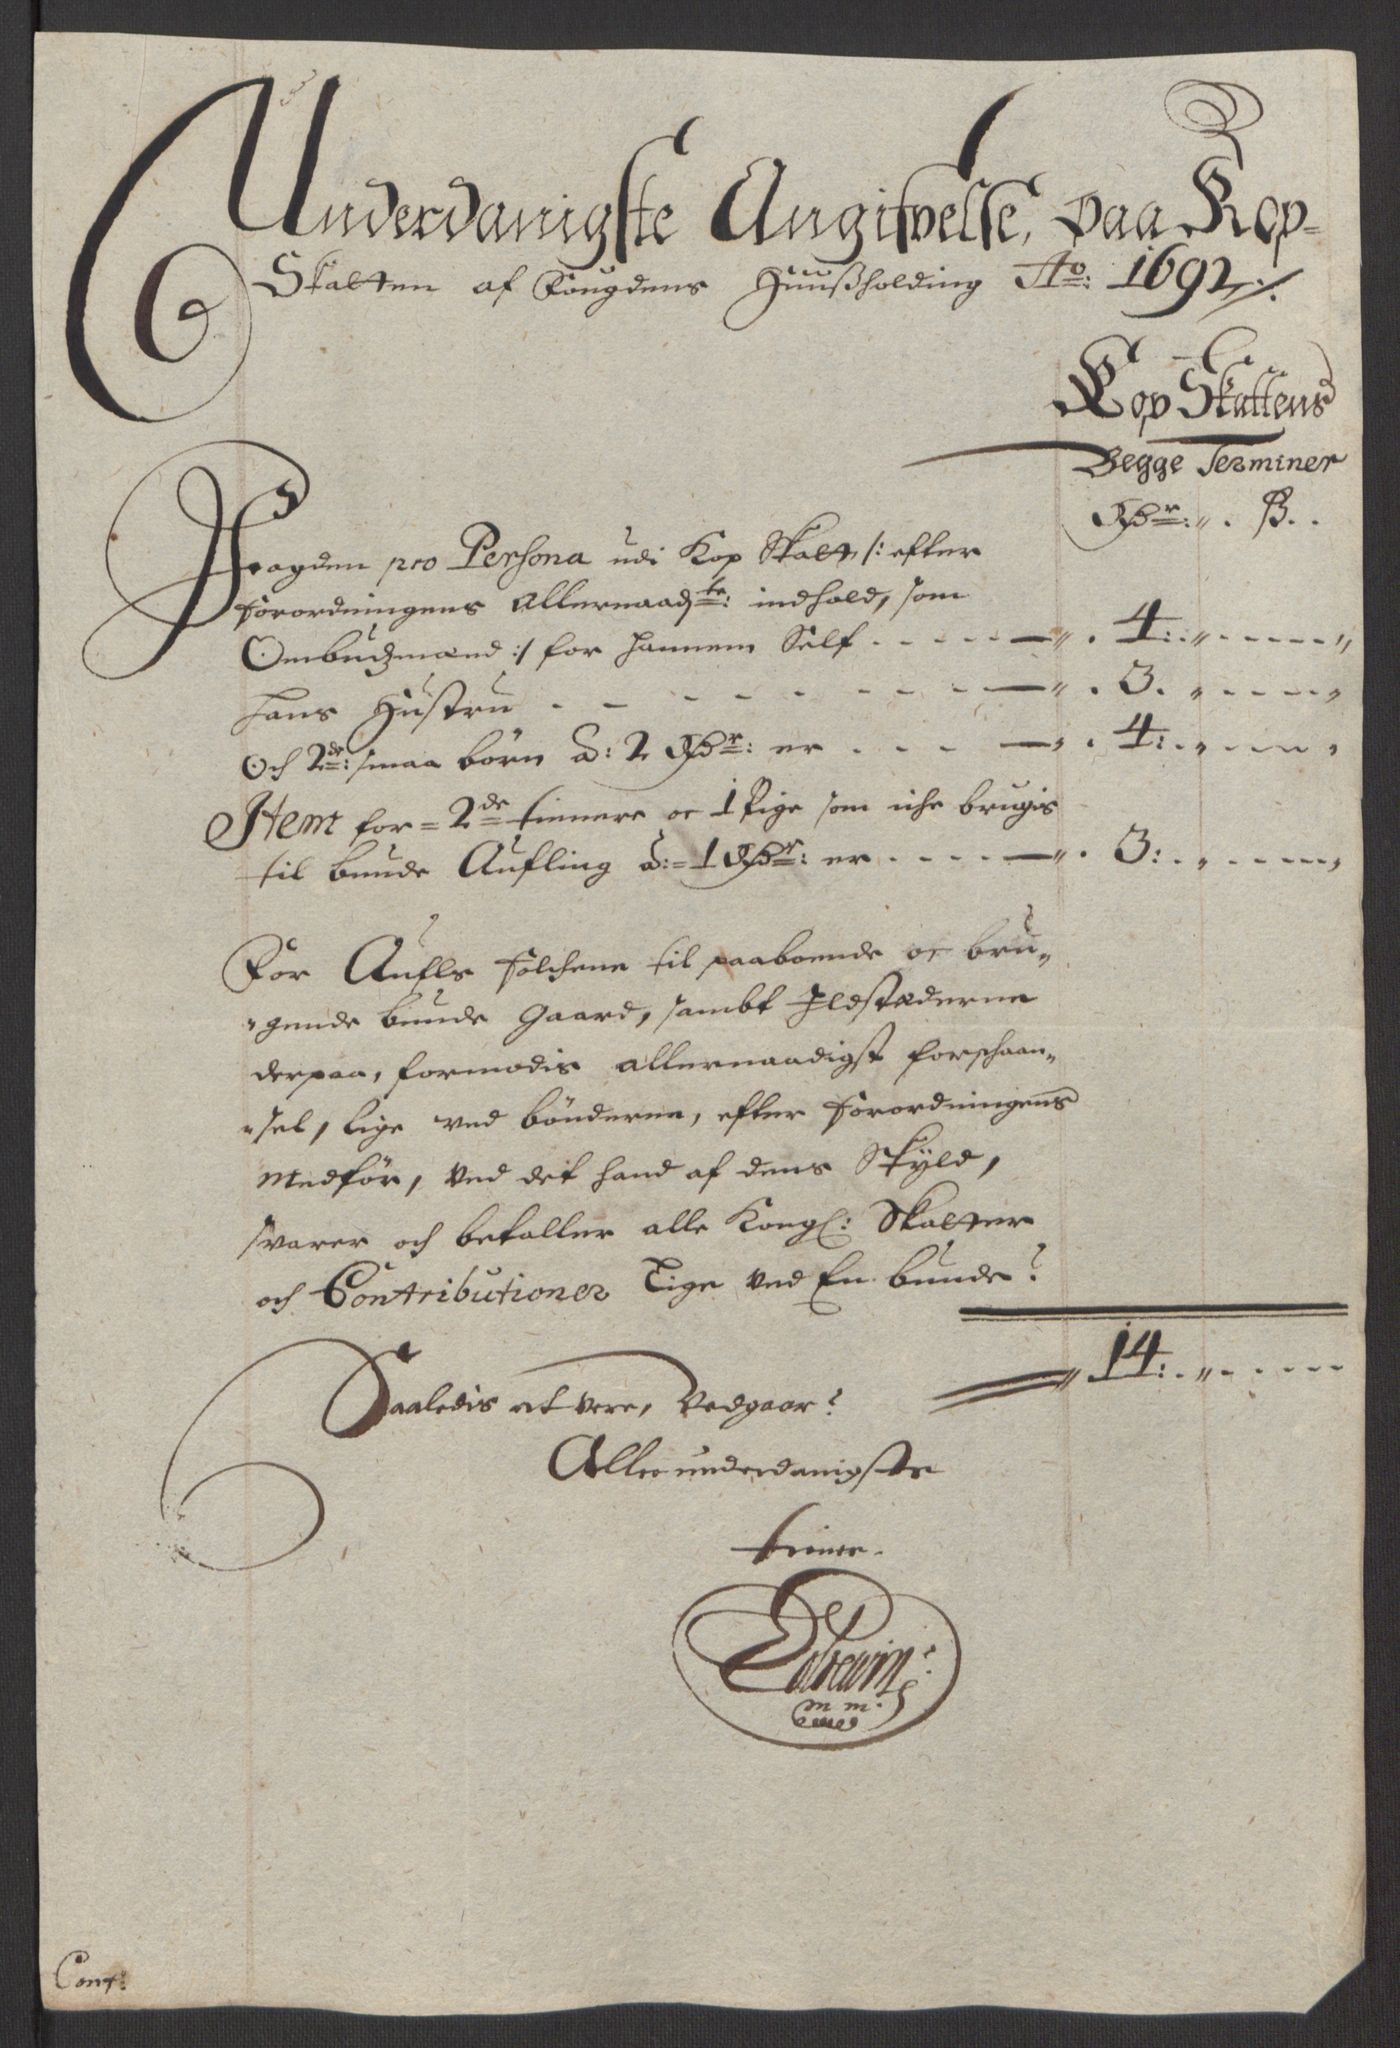 Underdanigste Angifvelse, paa Kop-
Skatten af Fougdens Huusholding Ao: 1692 ./.
Kop Skattens
Begge Terminer
Rdr: . ß. .
Fragden pro Persona udi Kop Skatt /: efter
forordningens allernaadste: indhold, som
Ombudzmænd :/ for hannem Self . . . . — „ . 4: . „ . . . . „
hans Hustru . . . . . . . . — „ . 3. „ . . . . „
Och 2de: smaa börn á: 2 Rdr: er . . . — „ . 4: . „ . . . „
Item for = 2de tienere oc 1 Pige som iche brugis
til bunde Aufling á: = 1 Rdr: er . . . . — „ . 3: . „ . . . . „
For Aufls folchene til paaboende oc bru„
„gende bunde Gaard, sambt Ildstæderne
derpaa, formodis allernaadigst forschaan„
„sel, lige ved bönderne, efter forordningens
Medför, ved det hand af dens Skyld,
svarer och betaller alle Kongl: Skatter
och Contributioner Lige ved En bunde?
„ 14: . „ . . . . .
Saaledis at vere, Vedgaar?
Allerunderdanigste
tiener.
m m.
Cont: